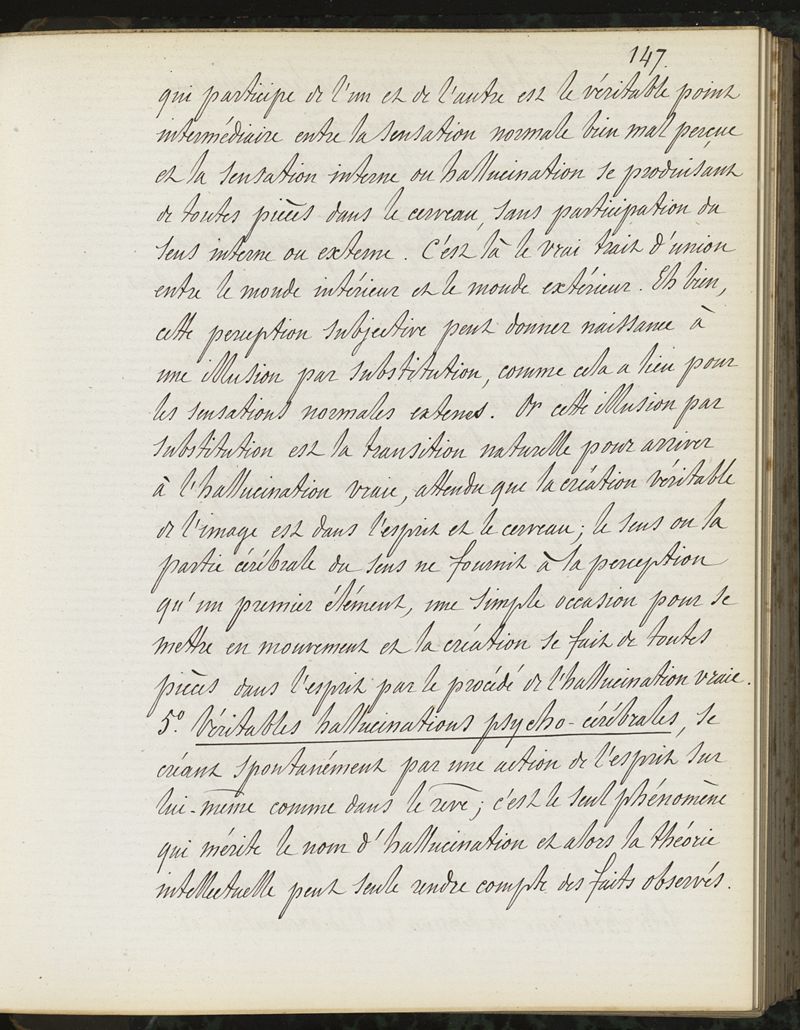 147.
qui participe de l'un et de l'autre est le véritable point
intermédiaire entre la sensation normale bien mal perçue
et la sensation interne ou hallucination se produisant
de toutes pièces dans le cerveau, sans participation du
sens interne ou externe. C'est là le vrai trait d'union
entre le monde intérieur et le monde extérieur. Eh bien,
cette perception subjective peut donner naissance à
une illusion par substitution, comme cela a lieu pour
les sensations normales externes. Or cette illusion par
substitution est la transition naturelle pour arriver
à l'hallucination vraie, attendu que la création véritable
de l'image est dans l'esprit et le cerveau; le sens ou la
partie cérébrale du sens ne fournit à la perception
qu'un premier élément, une simple occasion pour se
mettre en mouvement et la création se fait de toutes
pièces dans l'esprit par le procédé de l'hallucination vraie.
5º. Véritables hallucinations psycho-cérébrales, se
créant spontanément par une action de l'esprit sur
lui-même comme dans le rêve; c'est le seul phénomène
qui mérite le nom d'hallucination et alors la théorie
intellectuelle peut seule rendre compte des faits observés.